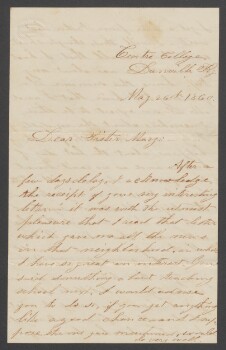 Centre College,
Danville Ky
May 1860
Dear Sister Mary
After a
few days delay, I acknowledge
the receipt of your very interesting
letter. It was with the utmost
pleasure that I read that letter
which gave me all the news
in that neighborhood, in which
I have so great an interest. You
said something about teaching
school
you to do so, if you get anything
like a good chance and
pose the one you mention, would
do very well